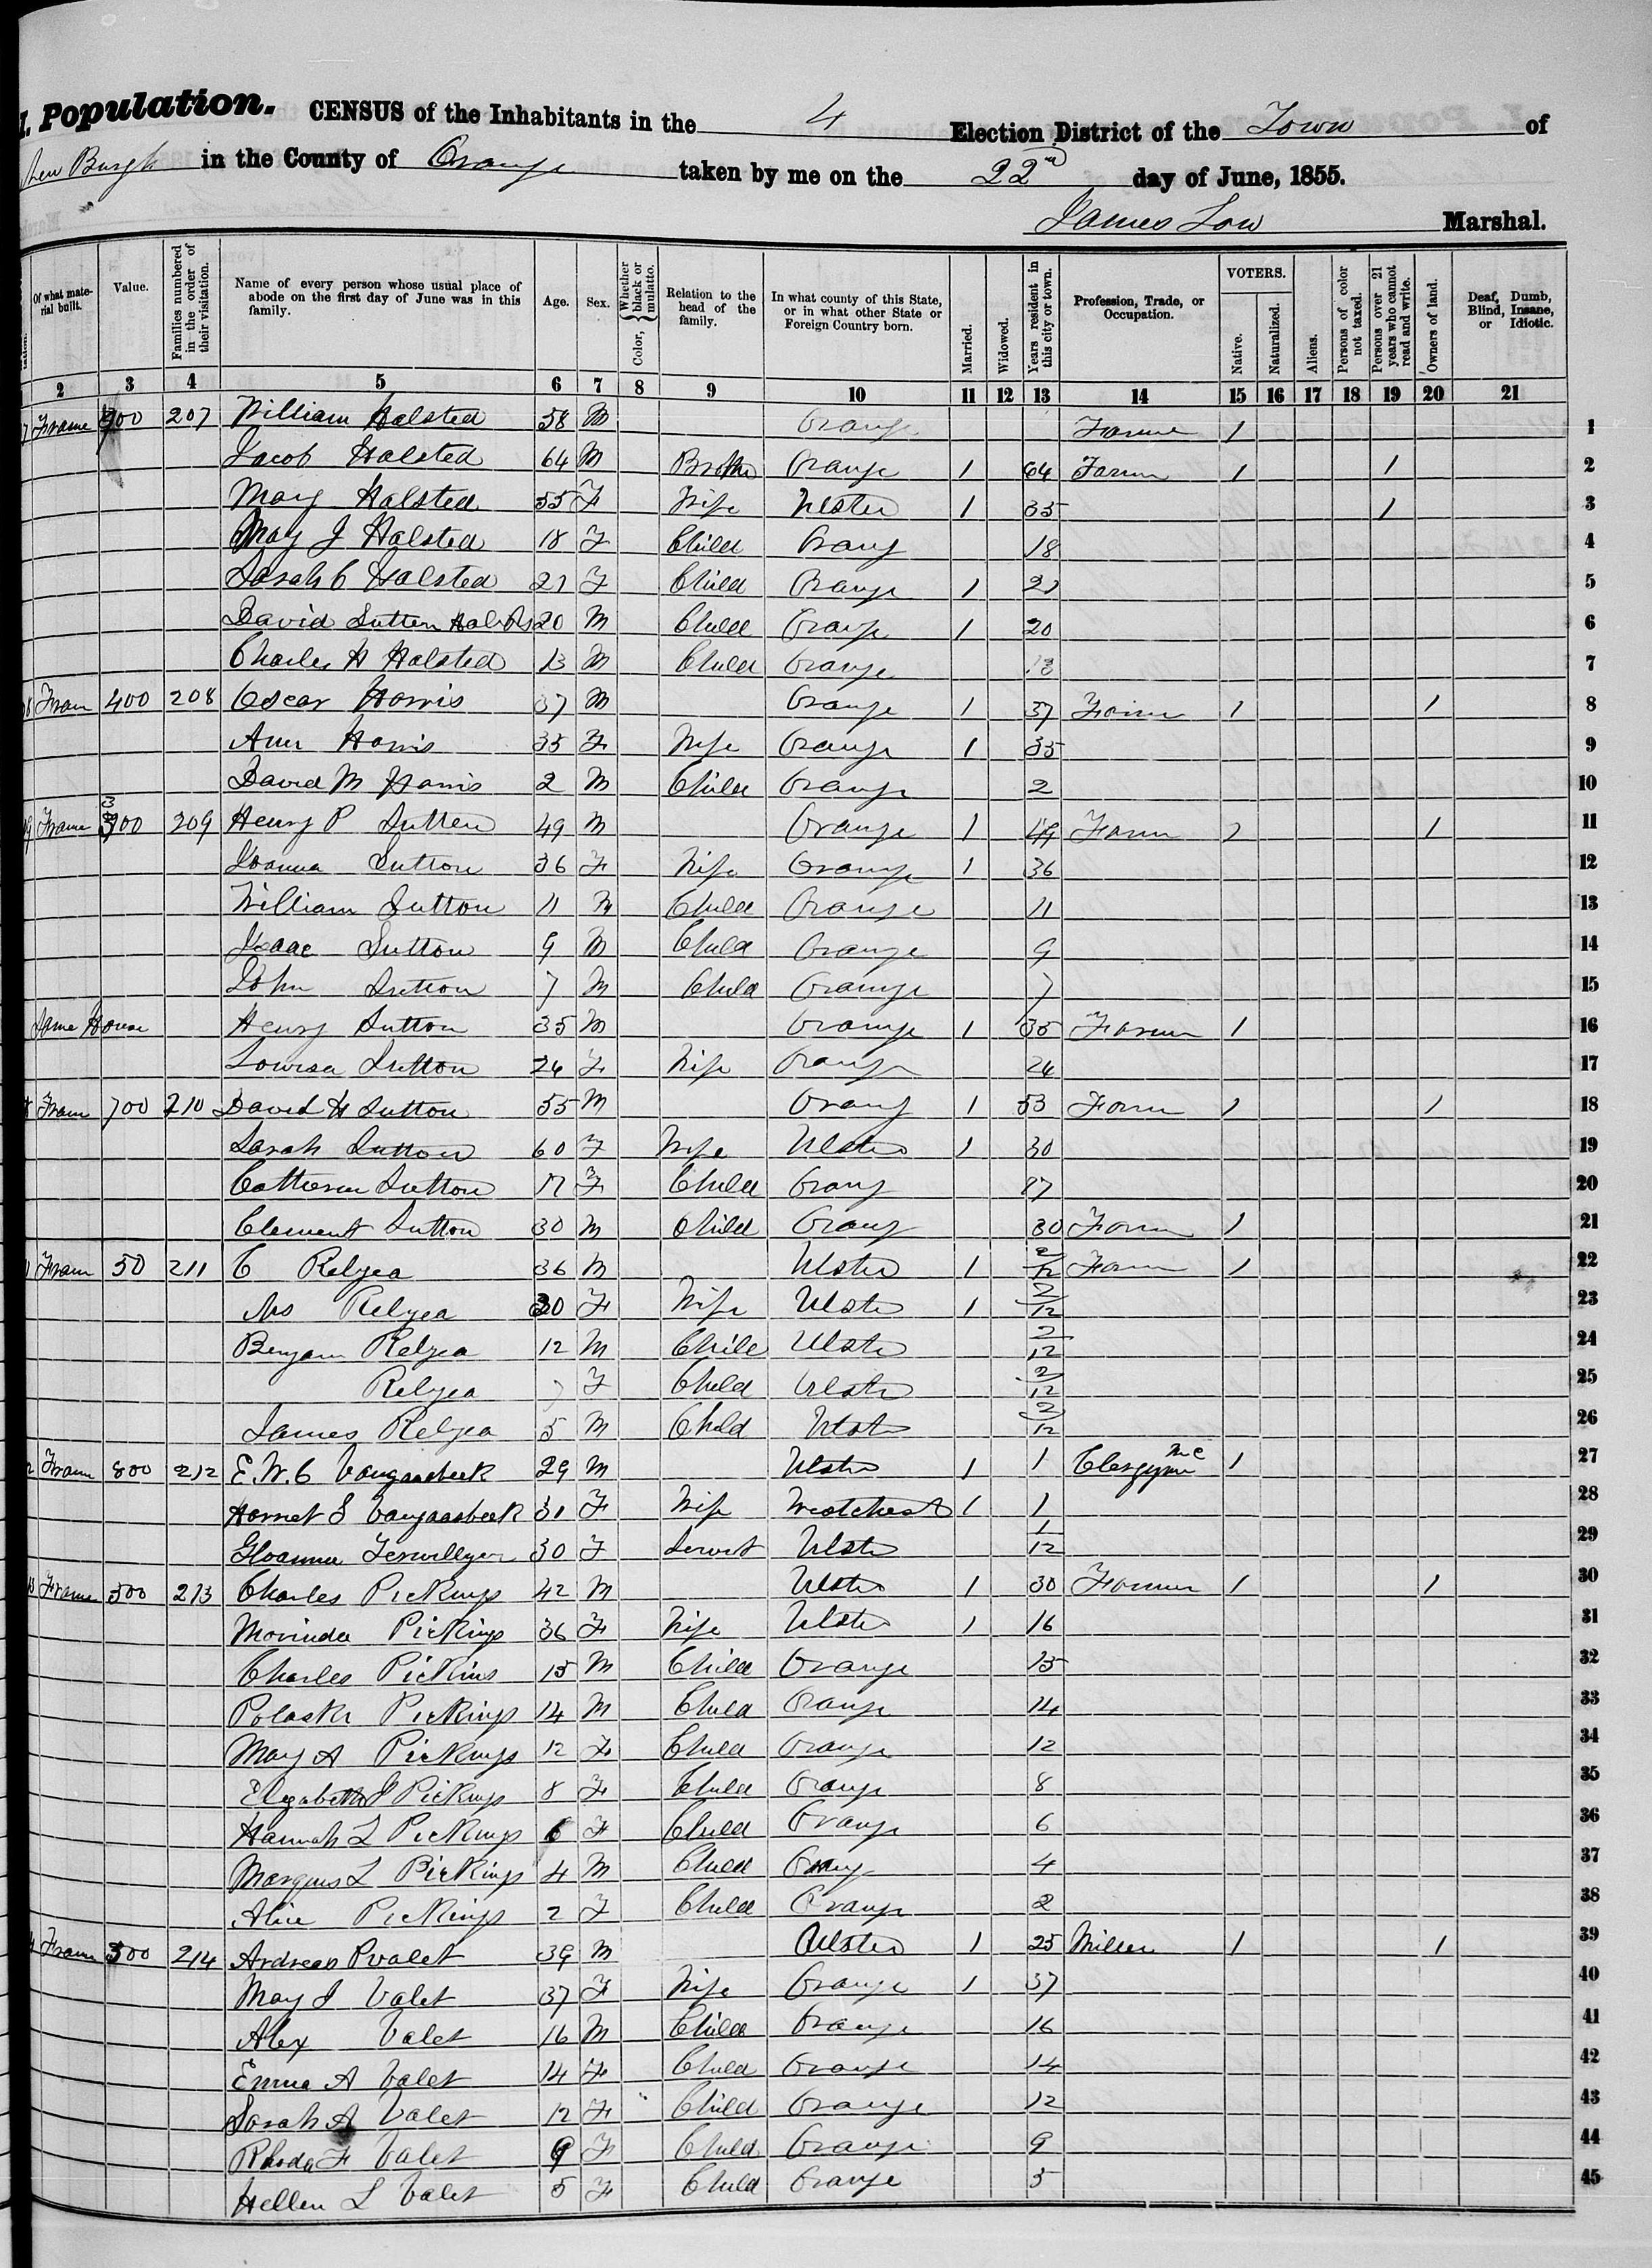 I. Population. CENSUS of the Inhabitants in the 4 Election District of the Town of
New Burgh in the County of Orange taken by me on the 22nd day of June, 1855.
James Low Marshal.
Of what material built. Value. Families numbered in the order of their visitation. Name of every person whose usual place of abode on the first day of June was in this family. Age. Sex. Color, { Whether black or mulatto. Relation to the head of the family. In what county of this State, or in what other State or Foreign Country born. Married. Widowed. Years resident in this city or town. Profession, Trade, or Occupation. VOTERS. Native. Naturalized. Aliens. Persons of color not taxed. Persons over 21 years who cannot read and write. Owners of land. Deaf, Dumb, Blind, Insane, or Idiotic.
2 3 4 5 6 7 8 9 10 11 12 13 14 15 16 17 18 19 20 21
Frame 207 William Halsted 58 M Orange Farmer 1 1
Jacob Halsted 64 M Brother Orange 1 64 Farmer 1 1 2
Mary Halsted 55 F Wife Ulster 1 35 1 3
Mary J Halsted 18 F Child Orang 18 4
Sarah C Halsted 21 F Child Orange 1 21 5
David Sutten 20 M Child Orange 1 20 6
Charles H Halsted 13 M Child Orange 13 7
Fram 400 208 Oscar Harris 37 M Orange 1 37 Farmer 1 1 8
Ann Harris 35 F Wife Orange 1 35 9
David M Harris 2 M Child Orange 2 10
Frame 300 209 Henry P Sutten 49 M Orange 1 49 Farm 1 1 11
Joanna Sutton 36 F Wife Orange 1 36 12
William Sutton 11 M Child Orange 11 13
Isaac Sutton 9 M Child Orange 9 14
John Sutton 7 M Child Orange 7 15
Same House Henry Sutton 35 M Orange 1 35 Farmer 1 16
Lowisa Sutton 24 F Wife Orange 24 17
Fram 700 210 David H Sutton 55 M Orang 1 53 Farm 1 1 18
Sarah Sutton 60 F Wife Ulster 1 30 19
Catherin Sutton 17 F Child Orang 17 20
Clement Sutton 30 M Child Orang 30 Farm 1 21
Fram 50 211 C Relyea 36 M Ulster 1 2/12 Farm 1 22
Mrs Relyea 30 F Wife Ulster 1 2/12 23
Benjam Relyea 12 M Child Ulster 2/12 24
Relyea 7 F Child Ulster 2/12 25
James Relyea 5 M Child Ulster 2/12 26
Fram 800 212 E. W. C Vangaasbeek 29 M Ulster 1 1 Clergyman 1 27
Harriet S Vangaasbeek 31 F Wife Westchest 1 1 28
Terwillyer 30 F Servt Ulster 1/12 29
Frame 500 213 Charles Pickings 42 M Ulster 1 30 Farmer 1 1 30
Morinda Pickings 36 F Wife Ulster 1 16 31
Charles Pickins 15 M Child Orange 15 32
Polaski Pickings 14 M Child Orange 14 33
Mary A Pickings 12 F Child Orange 12 34
Elizabeth J Pickings 8 F Child Orange 8 35
Hannah L Pickings 6 F Child Orange 6 36
Marques L Pickings 4 M Child Orang 4 37
Alice Pickings 2 F Child Orange 2 38
Fram 300 214 Andreas P valet 39 M Ulster 1 25 Miller 1 1 39
Mary J Valet 37 F Wife Orange 1 37 40
Alex Valet 16 M Child Orange 16 41
Emma A Valet 14 F Child Orange 14 42
Sarah A Valet 12 F Child Orange 12 43
Rhoda F Valet 9 F Child Orange 9 44
Hellen L Valet 5 F Child Orange 5 45